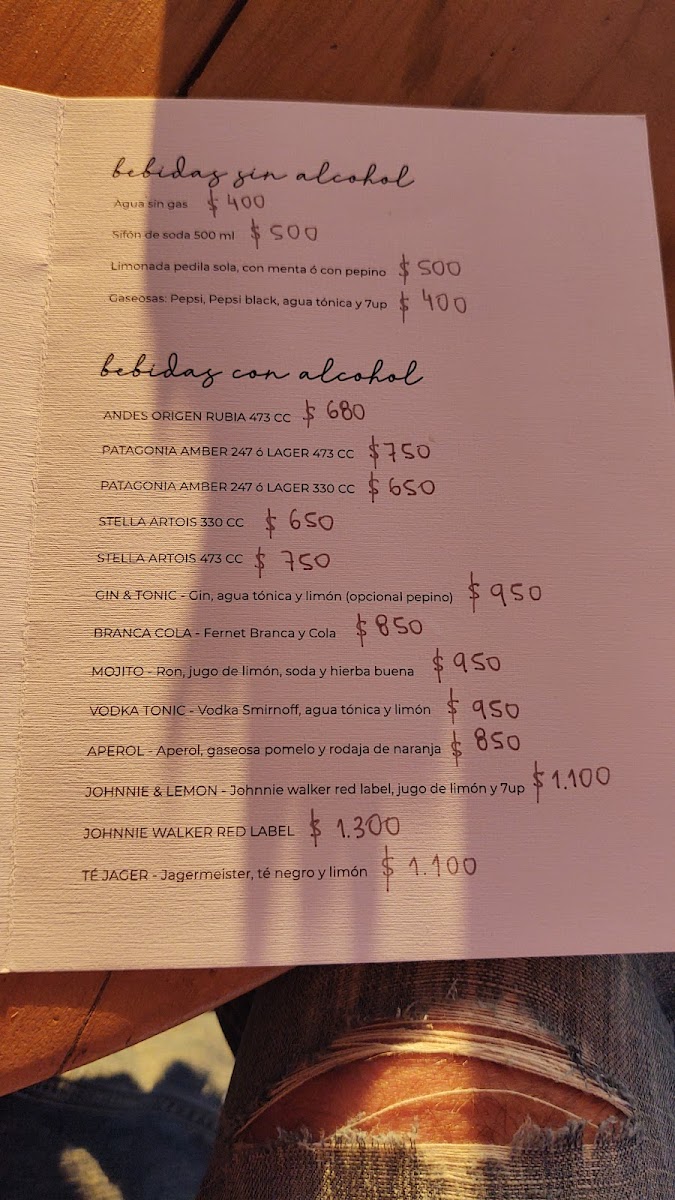 bebidas sin alcohol
Agua sin gas $ 400
Sifón de soda 500 ml $ 500
Limonada pedila sola, con menta ó con pepino $ 500
Gaseosas: Pepsi, Pepsi black, agua tónica y 7up $ 400
bebidas con alcohol
ANDES ORIGEN RUBIA 473 CC $ 680
PATAGONIA AMBER 247 ó LAGER 473 CC $750
PATAGONIA AMBER 247 ó LAGER 330 CC $ 650
STELLA ARTOIS 330 CC $ 650
STELLA ARTOIS 473 CC $ 750
GIN & TONIC - Gin, agua tónica y limón (opcional pepino) $ 950
BRANCA COLA - Fernet Branca y Cola $ 850
MOJITO - Ron, jugo de limón, soda y hierba buena $ 950
VODKA TONIC - Vodka Smirnoff, agua tónica y limón $ 950
APEROL - Aperol, gaseosa pomelo y rodaja de naranja $ 850
JOHNNIE & LEMON - Johnnie walker red label, jugo de limón y 7up $ 1.100
JOHNNIE WALKER RED LABEL $ 1.300
TÉ JAGER - Jagermeister, té negro y limón $ 1.100